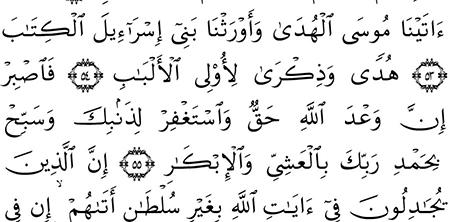 ءَاتَيْنَا مُوسَى ٱلْهُدَىٰ وَأَوْرَثْنَا بَنِىٓ إِسْرَٰٓءِيلَ ٱلْكِتَٰبَ
﴿٥٣﴾ هُدًى وَذِكْرَىٰ لِأُو۟لِى ٱلْأَلْبَٰبِ ﴿٥٤﴾ فَٱصْبِرْ
إِنَّ وَعْدَ ٱللَّهِ حَقٌّ وَٱسْتَغْفِرْ لِذَنۢبِكَ وَسَبِّحْ
بِحَمْدِ رَبِّكَ بِٱلْعَشِىِّ وَٱلْإِبْكَٰرِ ﴿٥٥﴾ إِنَّ ٱلَّذِينَ
يُجَٰدِلُونَ فِىٓ ءَايَٰتِ ٱللَّهِ بِغَيْرِ سُلْطَٰنٍ أَتَىٰهُمْ ۙ إِن فِى